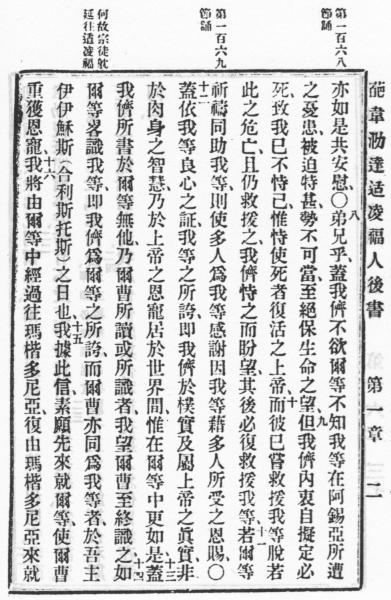 葩韋泐達适凌福人後書 第一章 二
第一百六八
節誦
第一百六九
節誦
何故宗徒躭
延往适凌福
亦如是共安慰○弟兄乎、蓋我儕不欲爾等不知我等在阿錫亞所遭
八
之憂患被迫特甚、勢不可當、至絕保生命之望、但我儕內衷自擬定必
九
死、致我已不恃己、惟恃使死者復活之上帝、而彼已嘗救援我等脫若
十
此之危亡、且仍救援之、我儕恃之而盼望、其後必復救援我等、若爾等
十一
祈禱同助我等、則使多人爲我等感謝、因我等藉多人所受之恩賜、○
十二
蓋依我等良心之証、我等之所誇、即我儕於樸實及屬上帝之眞實、非
於肉身之智慧、乃於上帝之恩寵、居於世界間、惟在爾等中更如是、蓋
十三
我儕所書於爾等無他、乃爾曹所讀或所識者、我望爾曹至終識之、如
十四
爾等畧識我等、即我儕爲爾等之所誇、而爾曹亦同爲我等者、於吾主
伊伊穌斯(合利斯托斯)之日也、我據此信、素願先來就爾等、使爾曹
十五
重獲恩寵、我將由爾等中經過往瑪楷多尼亞、復由瑪楷多尼亞來就
十六